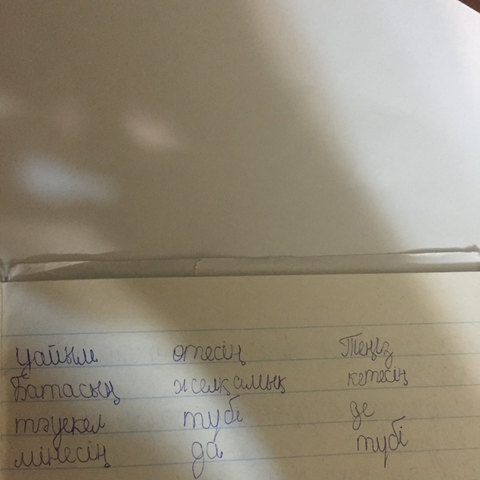 уайым өтесің Теңіз
Батасың желқамық кетесің
тәуекел түбі де
мінесің да түбі